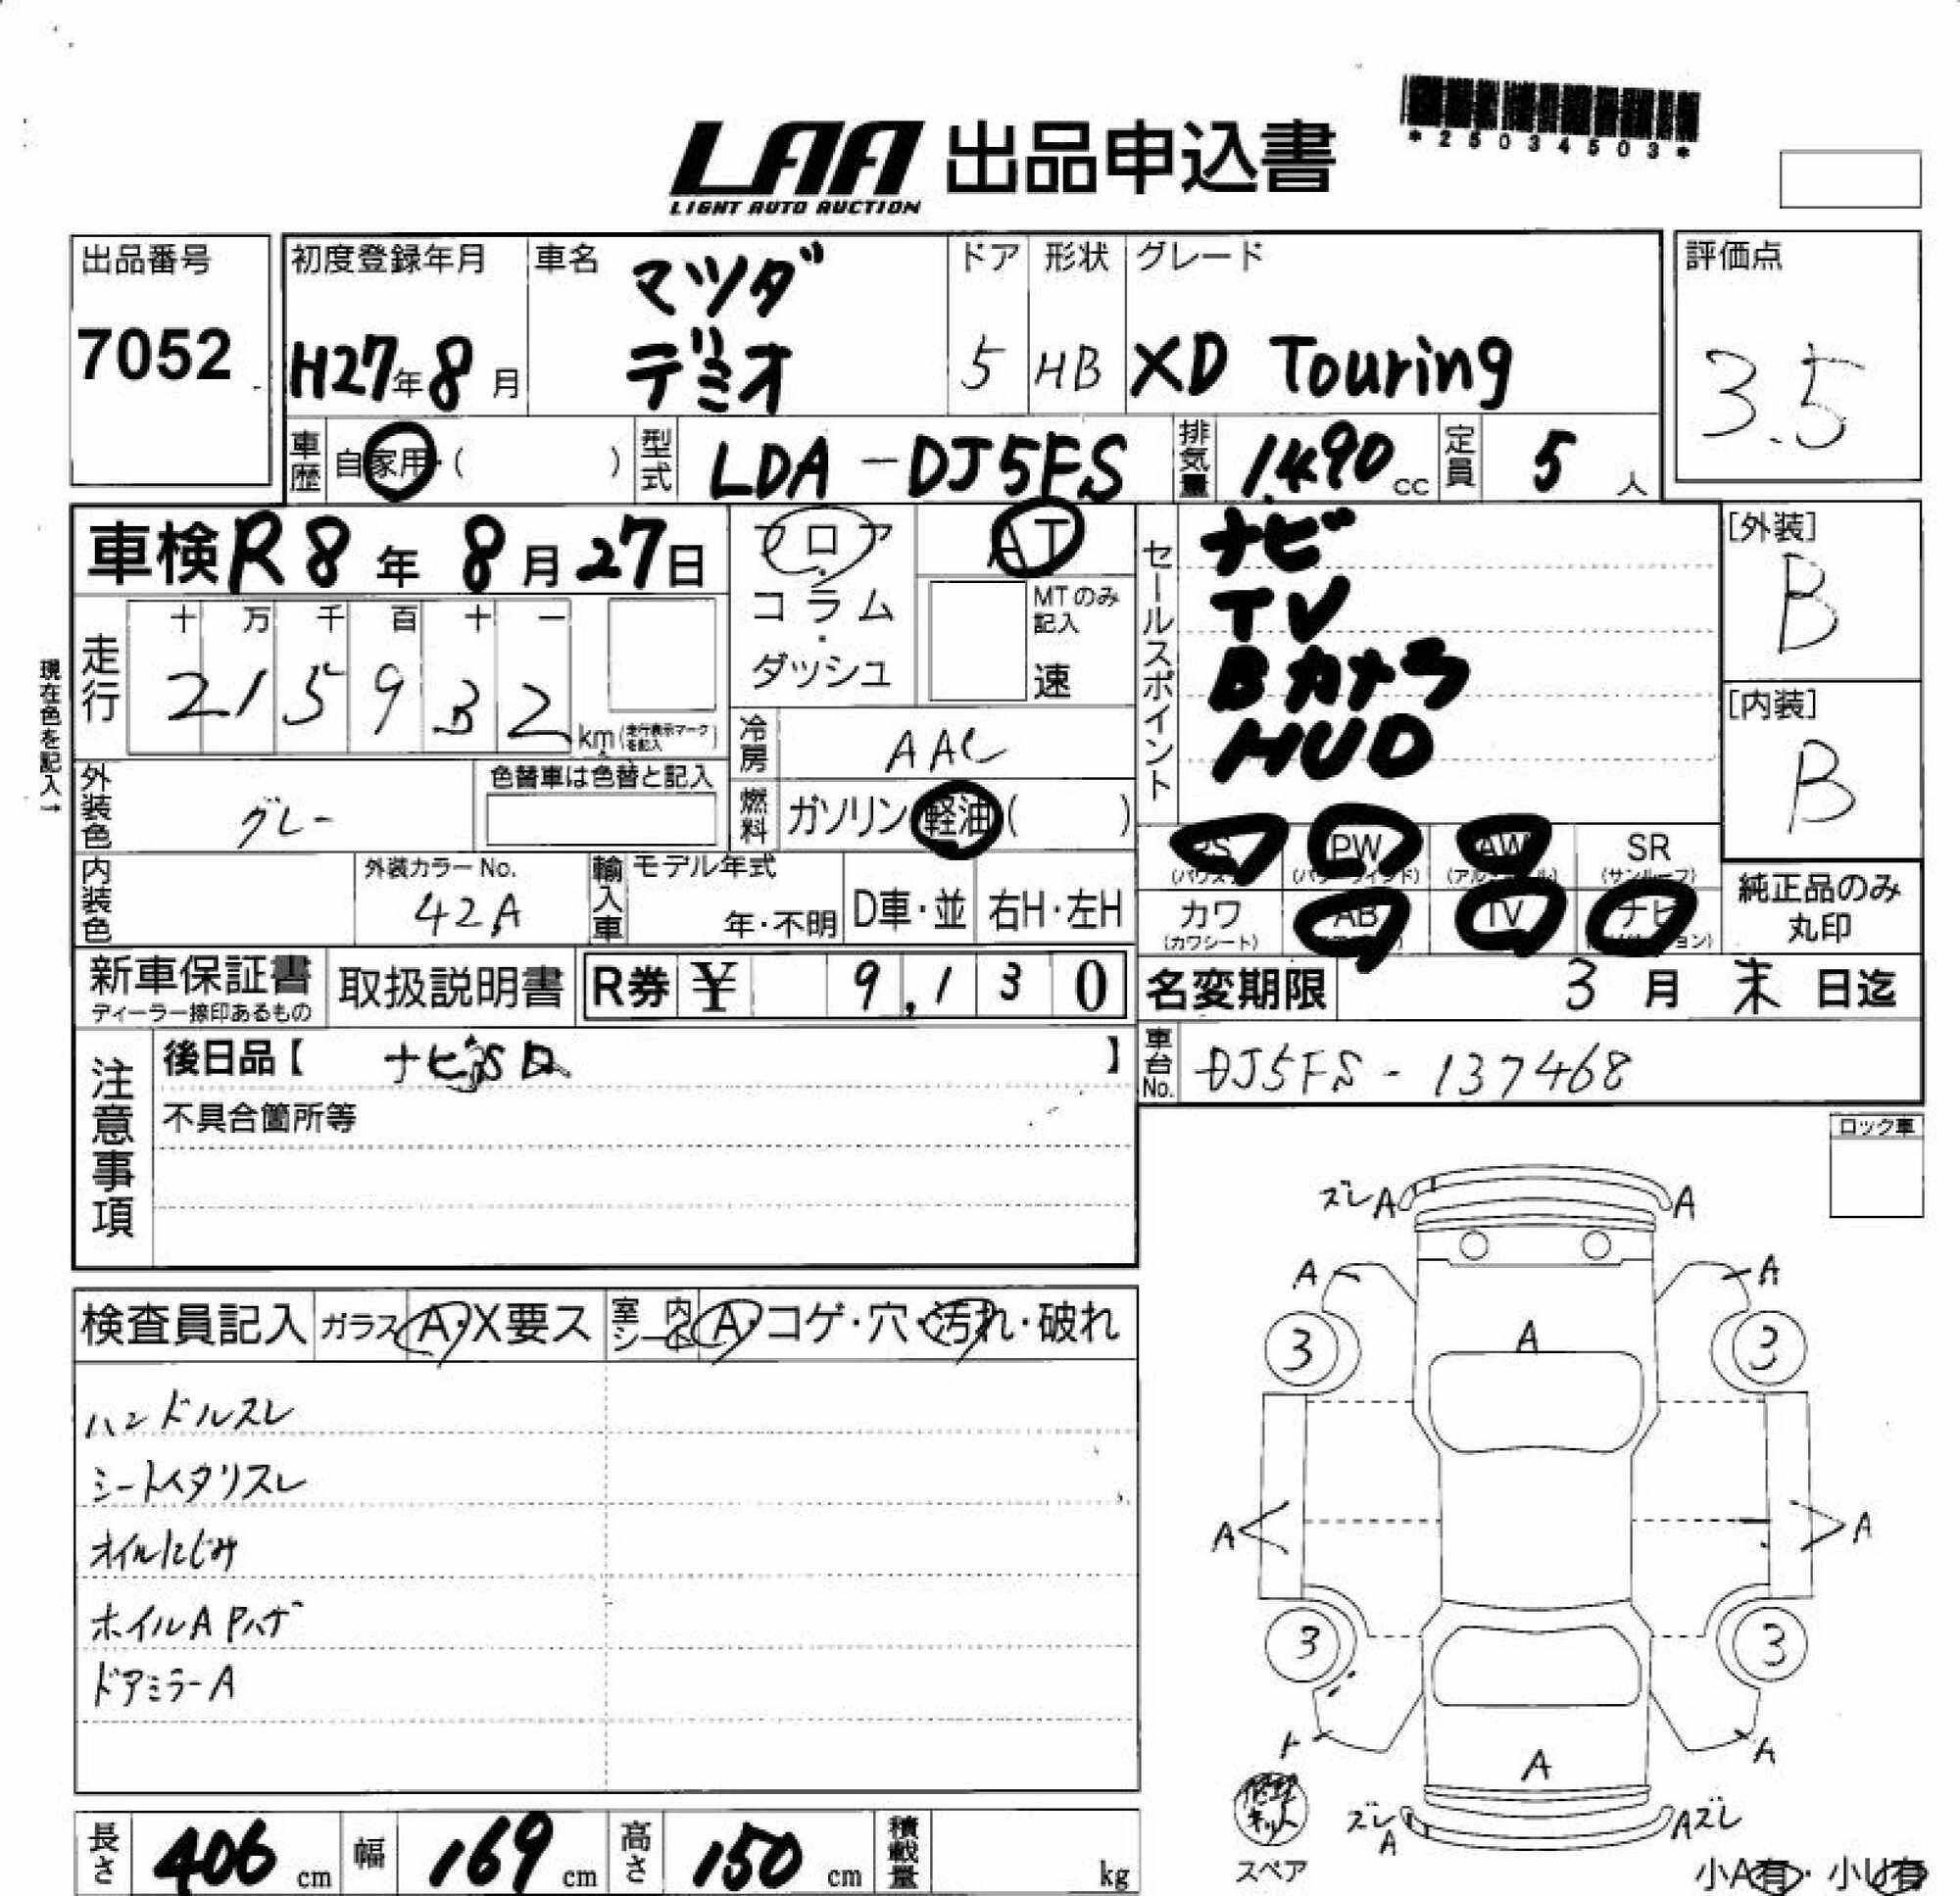 *25034503*
LAA 出品申込書
LIGHT AUTO AUCTION
出品番号
7052
初度登録年月
H27年8月
車名
マツダ
デミオ
ドア
5
形状
HB
グレード
XD Touring
評価点
3.5
車歴
自家用・( )
型式
LDA-DJ5FS
排気量
1,490cc
定員
5人
車検R8年8月27日
フロア
コラム
・
ダッシュ
AT
MTのみ記入
速
セールスポイント
ナビ
TV
Bカメラ
HUD
[外装]
B
[内装]
B
現在色を記入→
走行
十 万 千 百 十 一
2 1 5 9 3 2 km(走行表示マークを記入)
冷房
AAC
燃料
ガソリン 軽油( )
外装色
グレー
色替車は色替と記入
内装色
外装カラーNo.
42A
輸入車
モデル年式
年・不明
D車・並
右H・左H
PS
PW
AW
SR
(サンルーフ)
カワ
(カワシート)
AB
TV
ナビ
純正品のみ
丸印
新車保証書
ディーラー捺印あるもの
取扱説明書
R券 ¥ 9,130
名変期限 3月末日迄
注意事項
後日品【 ナビSD 】
不具合箇所等
車台No.
DJ5FS-137468
ロック車
検査員記入
ガラス A・X要ス
室内シート A・コゲ・穴・汚れ・破れ
ハンドルスレ
シートヘタリスレ
オイルにじみ
ホイルA Pハゲ
ドアミラーA
ズレA A
A A
3 A 3
A A
3 3
A
A
修理キット
スペア
ズレA Aズレ
小A有・小U有
長さ 406 cm
幅 169 cm
高さ 150 cm
積載量 kg